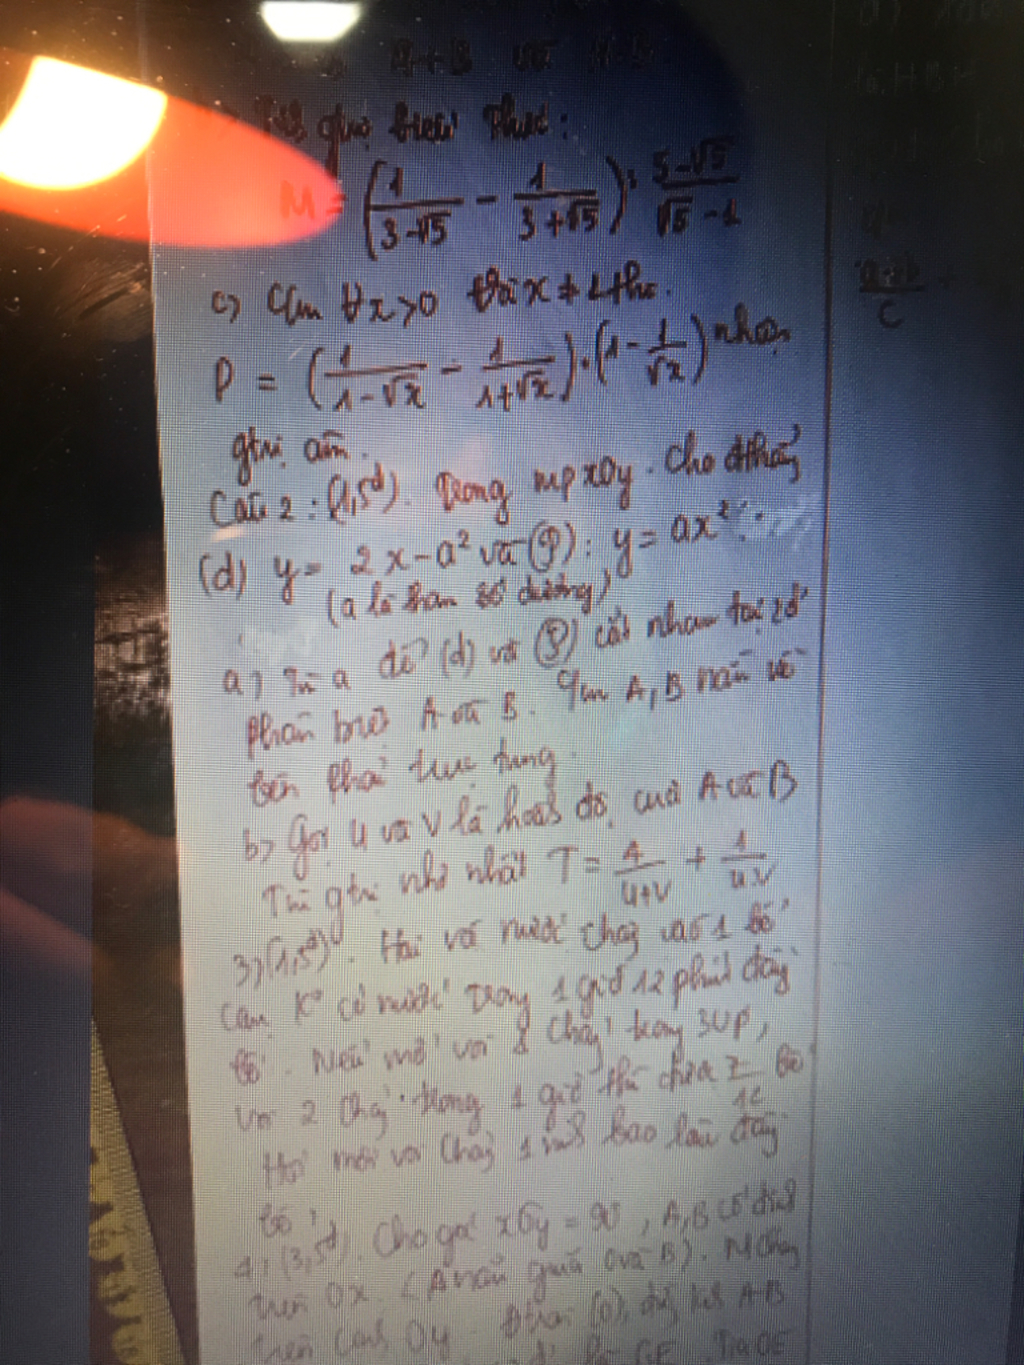 A+B và
biểu thức:
M = (1/(3-√5) - 1/(3+√5)) : (5-√5)/(√5-1)
c) Cm ∀x>0 và x ≠ 1 thì
P = (1/(1-√x) - 1/(1+√x)) . (1 - 1/√x) nhận
gtrị âm.
Câu 2: (1,5đ). Trong mp xOy. Cho đthẳng
(d) y = 2x-a² và (P): y = ax².
(a là tham số dương)
a) Tìm a để (d) và (P) cắt nhau tại 2đ
phân biệt A và B. Cm A, B nằm về
bên phải trục tung.
b) Gọi u và v là hoành độ của A và B
Tìm gtrị nhỏ nhất T = 4/(u+v) + 1/(u.v)
3) (1,5đ). Hai vòi nước chảy vào 1 bể
cạn ko có nước trong 1 giờ 12 phút đầy
bể. Nếu mở vòi 1 chảy trong 30p,
vòi 2 chảy trong 1 giờ thì chảy 7/12 bể
Hỏi mỗi vòi chảy 1 mình bao lâu đầy
bể?
4) (3,5đ). Cho góc xOy = 90, A, B cố định
trên Ox (A nằm giữa O và B). M
trên cạnh Oy. kính AB